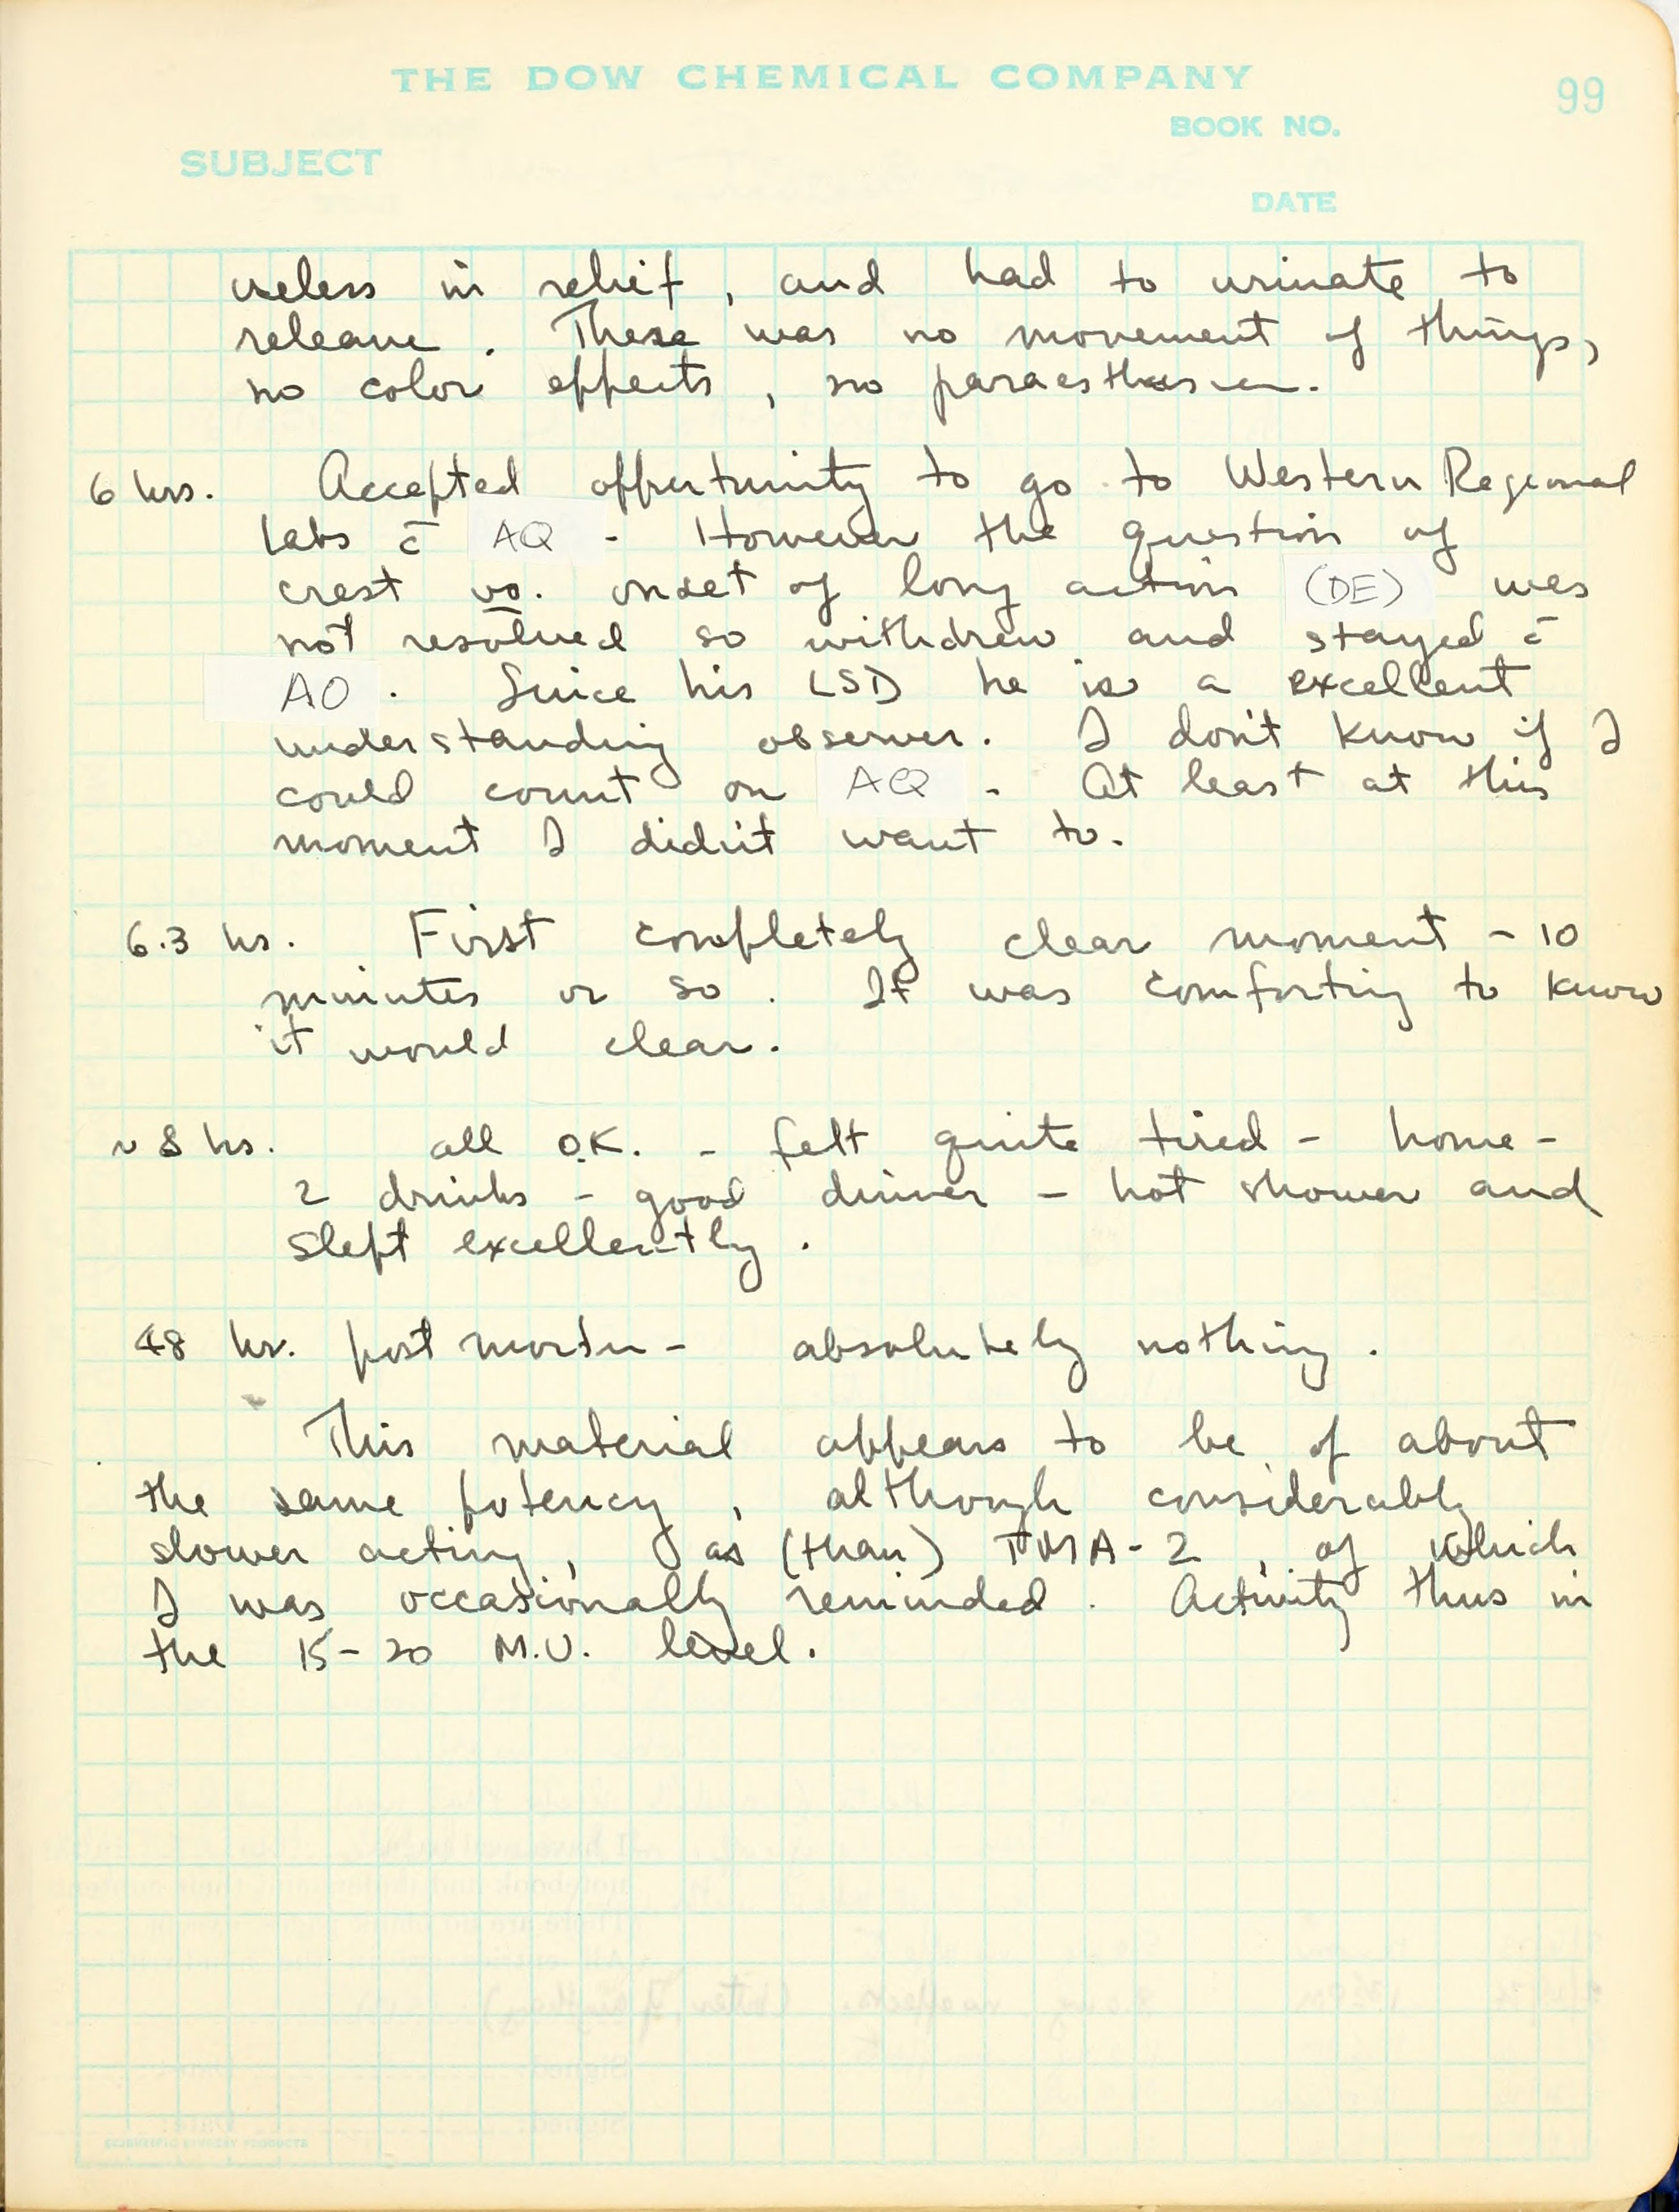 THE DOW CHEMICAL COMPANY
99
BOOK NO.
SUBJECT
DATE
useless in relief, and had to urinate to
release. There was no movement of things,
no color effects, no paraesthesia.
6 hrs. Accepted opportunity to go to Western Regional
Labs c̄ AQ - However the question of
crest vs. onset of long action (DE) was
not resolved so withdrew and stayed c̄
AO. Since his LSD he is a excellent
understanding observer. I don't know if I
could count on AQ - At least at this
moment I didn't want to.
6.3 hs. First completely clear moment - 10
minutes or so. It was comforting to know
it would clear.
~ 8 hs. all O.K. - felt quite tired - home -
2 drinks - good dinner - hot shower and
slept excellently.
48 hr. post mortem - absolutely nothing.
This material appears to be of about
the same potency, although considerably
slower acting, as (than) TMA-2, of which
I was occasionally reminded. Activity thus in
the 15-20 M.U. level.
SCIENTIFIC SUPPLY PRODUCTS